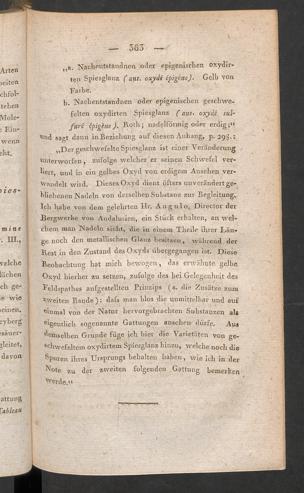 — 363 —
„a. Nachentstandnen oder epigenischen oxydir-
ten Spiesglanz (ant. oxydé épigène). Gelb von
Farbe.
b. Nachentstandnen oder epigenischen geschwe-
felten oxydirten Spiesglanz (ant. oxydé sul-
furé épigène), Roth; nadelförmig oder erdig;“
und sagt dann in Beziehung auf diesen Anhang, p. 295.:
„Der geschwefelte Spiesglanz ist einer Veränderung
unterworfen, zufolge welcher er seinen Schwefel ver-
liert, und in ein gelbes Oxyd von erdigem Ansehen ver-
wandelt wird. Dieses Oxyd dient öfters unverändert ge-
bliebenen Nadeln von derselben Substanz zur Begleitung.
Ich habe von dem gelehrten Hr. Angulo, Director der
Bergwerke von Andalusien, ein Stück erhalten, an wel-
chem man Nadeln sieht, die in einem Theile ihrer Län-
ge noch den metallischen Glanz besitzen, während der
Rest in den Zustand des Oxyds übergegangen ist. Diese
Beobachtung hat mich bewogen, das erwähnte gelbe
Oxyd hierher zu setzen, zufolge des bei Gelegenheit des
Feldspathes aufgestellten Prinzips (s. die Zusätze zum
zweiten Bande); daſs man blos die unmittelbar und auf
einmal von der Natur hervorgebrachten Substanzen als
eigentlich sogenannte Gattungen ansehen dürfe. Aus
demselben Grunde füge ich hier die Varietäten von ge-
schwefeltem oxydirtem Spiesglanz hinzu, welche noch die
Spuren ihres Ursprungs behalten haben, wie ich in der
Note zu der zweiten folgenden Gattung bemerken
werde.“
Arten
wenn
mine
r. III.,
welche
wie
davon
attung
Tableau